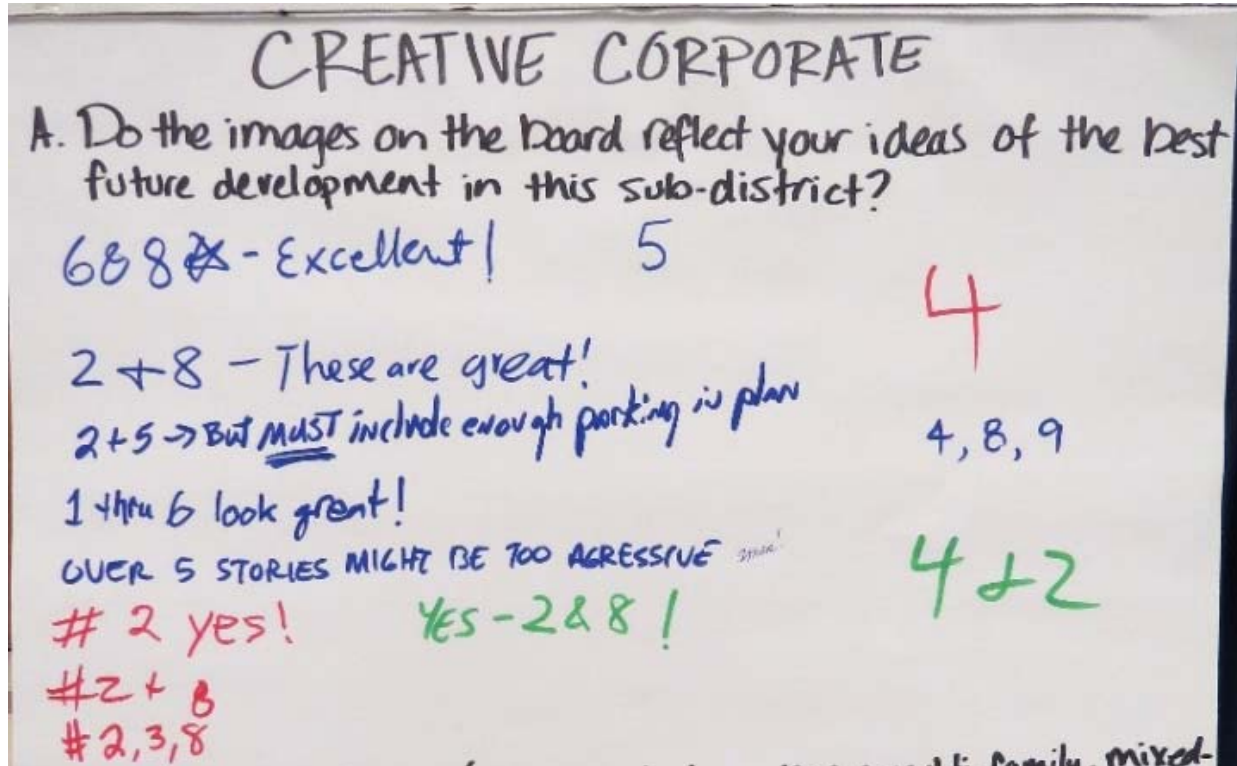 CREATIVE CORPORATE
A. Do the images on the board reflect your ideas of the best
future development in this sub-district?
6 & 8 - Excellent!
5
4
2 + 8 - These are great!
2 + 5 → But MUST include enough parking in plan
4, 8, 9
1 thru 6 look great!
OVER 5 STORIES MIGHT BE TOO AGRESSIVE
4 + 2
# 2 yes!
YES - 2 & 8 !
#2 + 8
# 2, 3, 8
family, mixed-